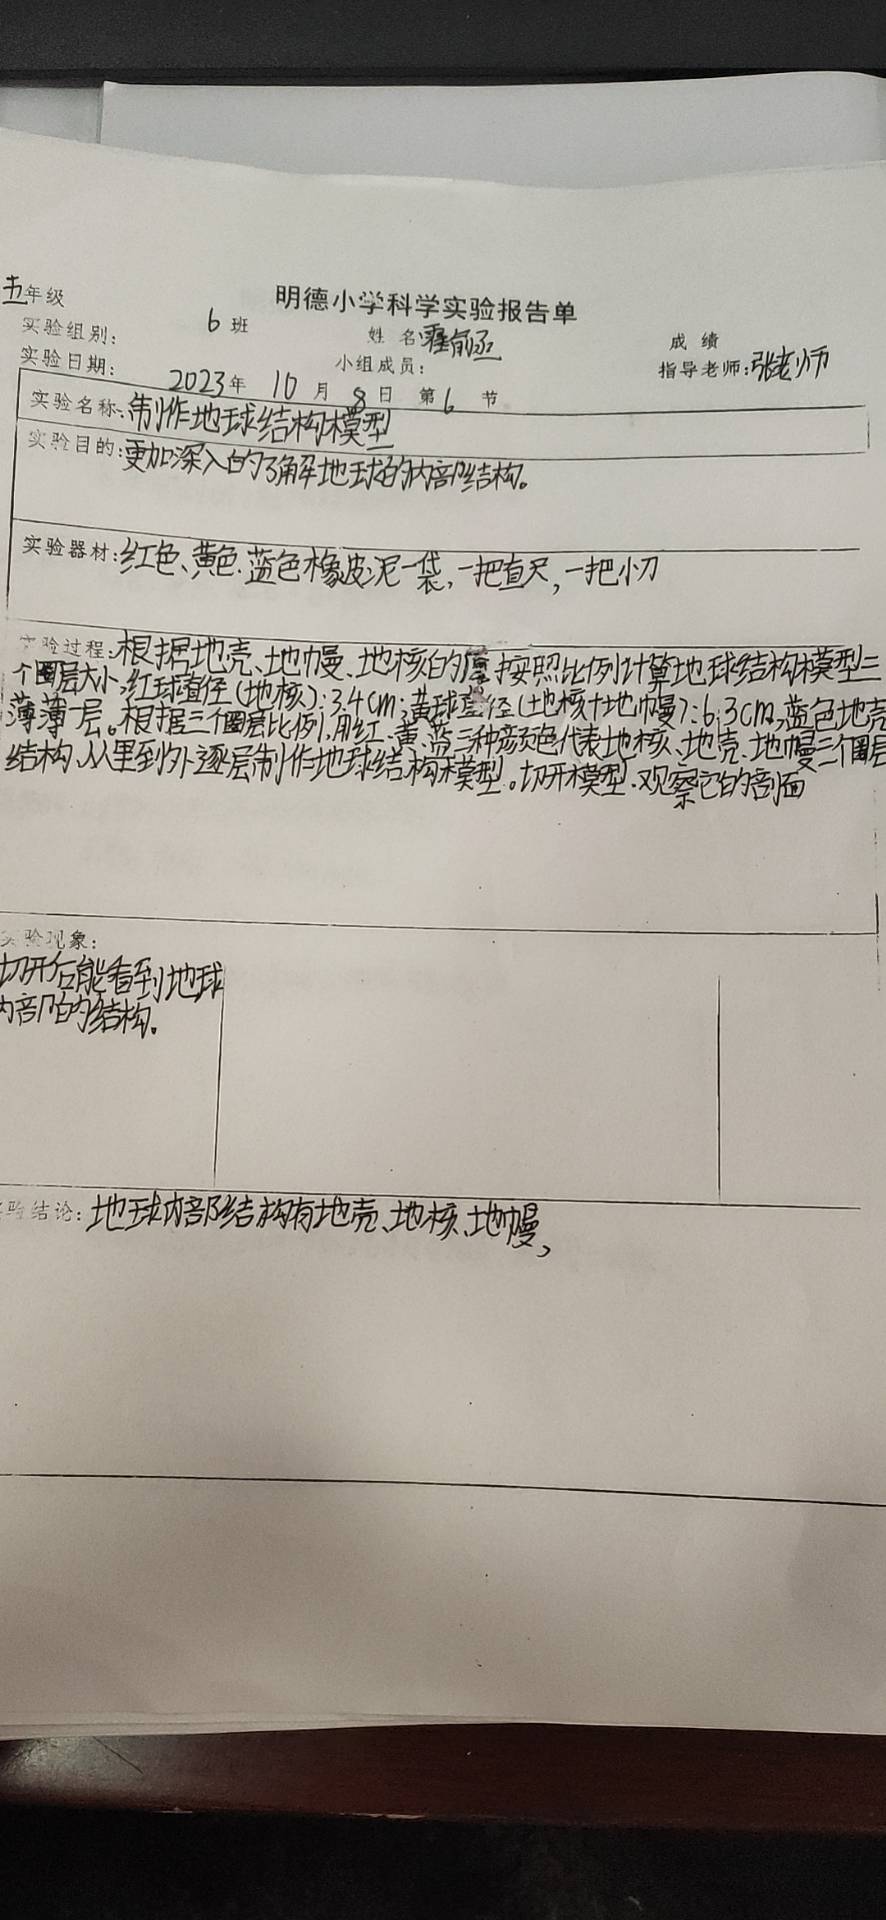 五年级 明德小学科学实验报告单
实验组别: 6班 姓名 成绩
实验日期: 2023年10月8日 第6节 小组成员: 指导老师:张老师
实验名称:制作地球结构模型
实验目的:更加深入的了解地球的内部结构。
实验器材:红色、黄色、蓝色橡皮泥一袋,一把直尺,一把小刀
实验过程:根据地壳、地幔、地核的厚 按照比例计算地球结构模型三
个圈层大小,红球直径(地核):3.4cm;黄球直径(地核+地幔):6.3cm,蓝色地壳
薄薄一层。根据三个圈层比例,用红、黄、蓝三种颜色代表地核、地壳、地幔三个圈层
结构,从里到外逐层制作地球结构模型。切开模型.观察它的剖面
实验现象:
切开后能看到地球
内部的结构。
实验结论:地球内部结构有地壳、地核、地幔,